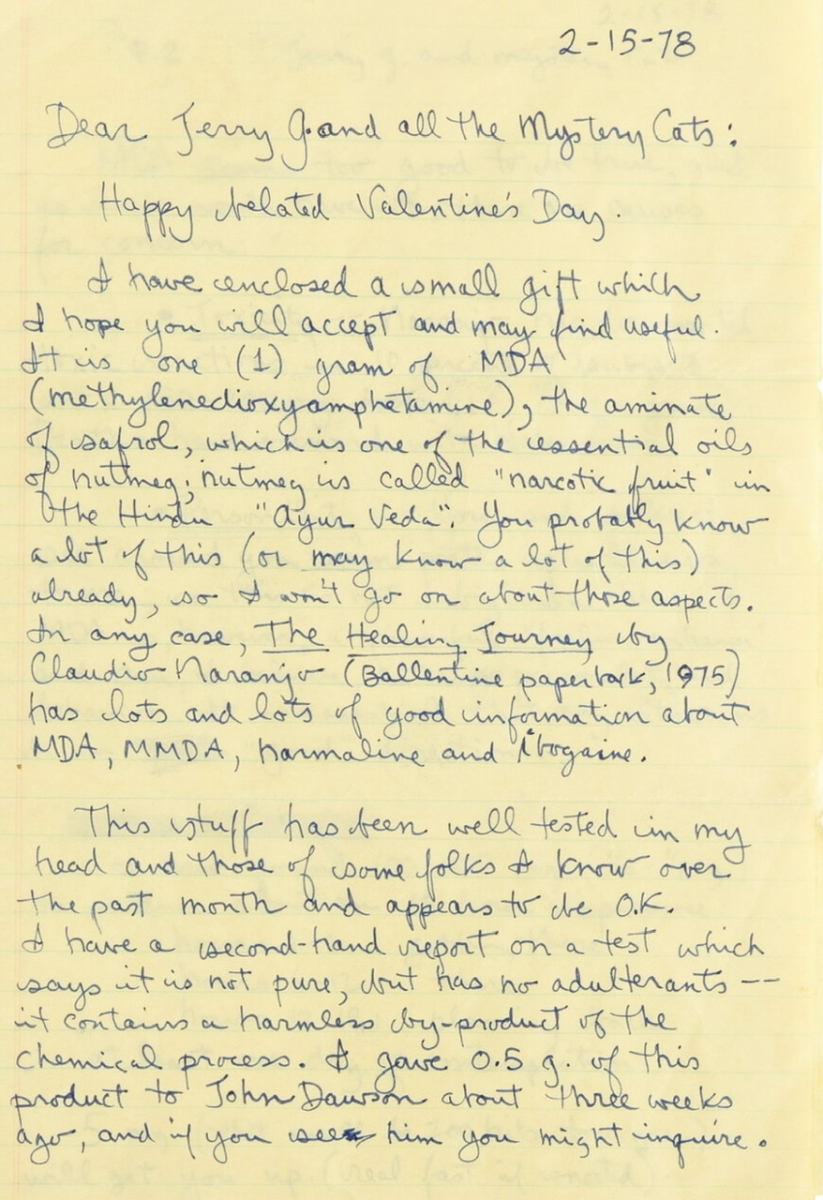 2-15-78
Dear Jerry G. and all the Mystery Cats:
Happy belated Valentine's Day.
I have enclosed a small gift which
I hope you will accept and may find useful.
It is one (1) gram of MDA
(methylenedioxyamphetamine), the aminate
of safrol, which is one of the essential oils
of nutmeg; nutmeg is called "narcotic fruit" in
the Hindu "Ayur Veda". You probably know
a lot of this (or may know a lot of this)
already, so I won't go on about those aspects.
In any case, The Healing Journey by
Claudio Naranjo (Ballentine paperback, 1975)
has lots and lots of good information about
MDA, MMDA, harmaline and ibogaine.
This stuff has been well tested in my
head and those of some folks I know over
the past month and appears to be O.K.
I have a second-hand report on a test which
says it is not pure, but has no adulterants --
it contains a harmless by-product of the
chemical process. I gave 0.5 g. of this
product to John Dawson about three weeks
ago, and if you see him you might inquire.